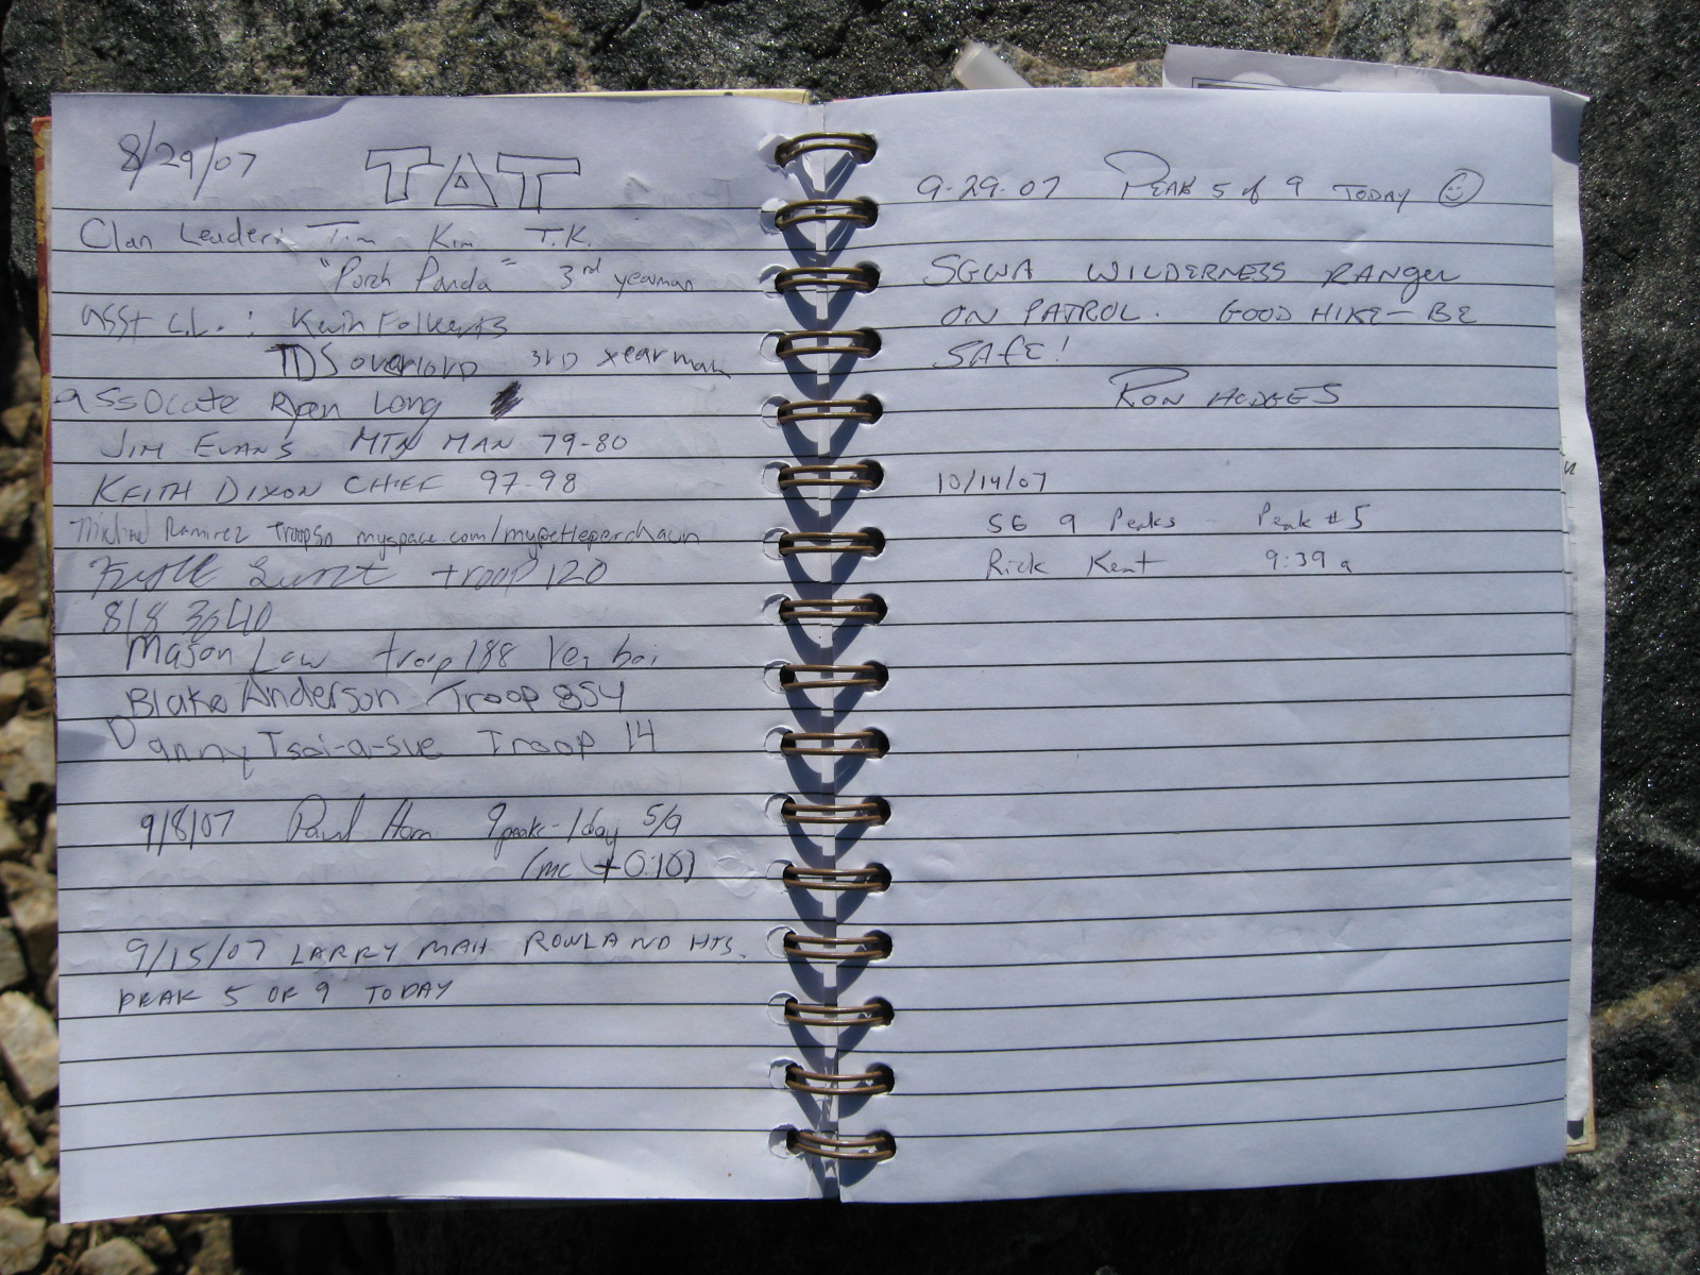 8/29/07 TAT
Clan Leader: Tim Kim T.K.
"Porch Panda" 3rd yearman
asst C.L. : Kevin Folkerts
TDS overlord 3RD yearman
assocate Ryan Long
JIM EVANS MTN MAN 79-80
KEITH DIXON CHIEF 97-98
Michael Ramirez troop50
troop 120
Mason Law troop 188
Blake Anderson Troop 854
Danny Tsoi-a-sue Troop 14
9/8/07 Paul Horn 9 peaks-1day 5/9
(mc + 0:10)
9/15/07 LARRY MAH ROWLAND HTS.
PEAK 5 OF 9 TODAY
9-29-07 PEAK 5 of 9 TODAY ☺
SGWA WILDERNESS RANGER
ON PATROL. GOOD HIKE - BE
SAFE!
RON HODGES
10/14/07
SG 9 Peaks - Peak #5
Rick Kent 9:39a